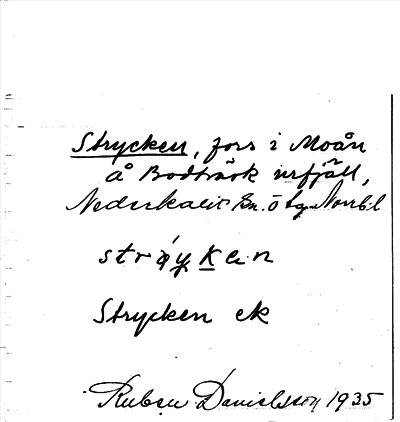 Strycken, fors i Moån
å Bodträsk urfjäll,
Nederkalix sn. o
stræyken
Strycken ek
Ruben Danielsson 1935